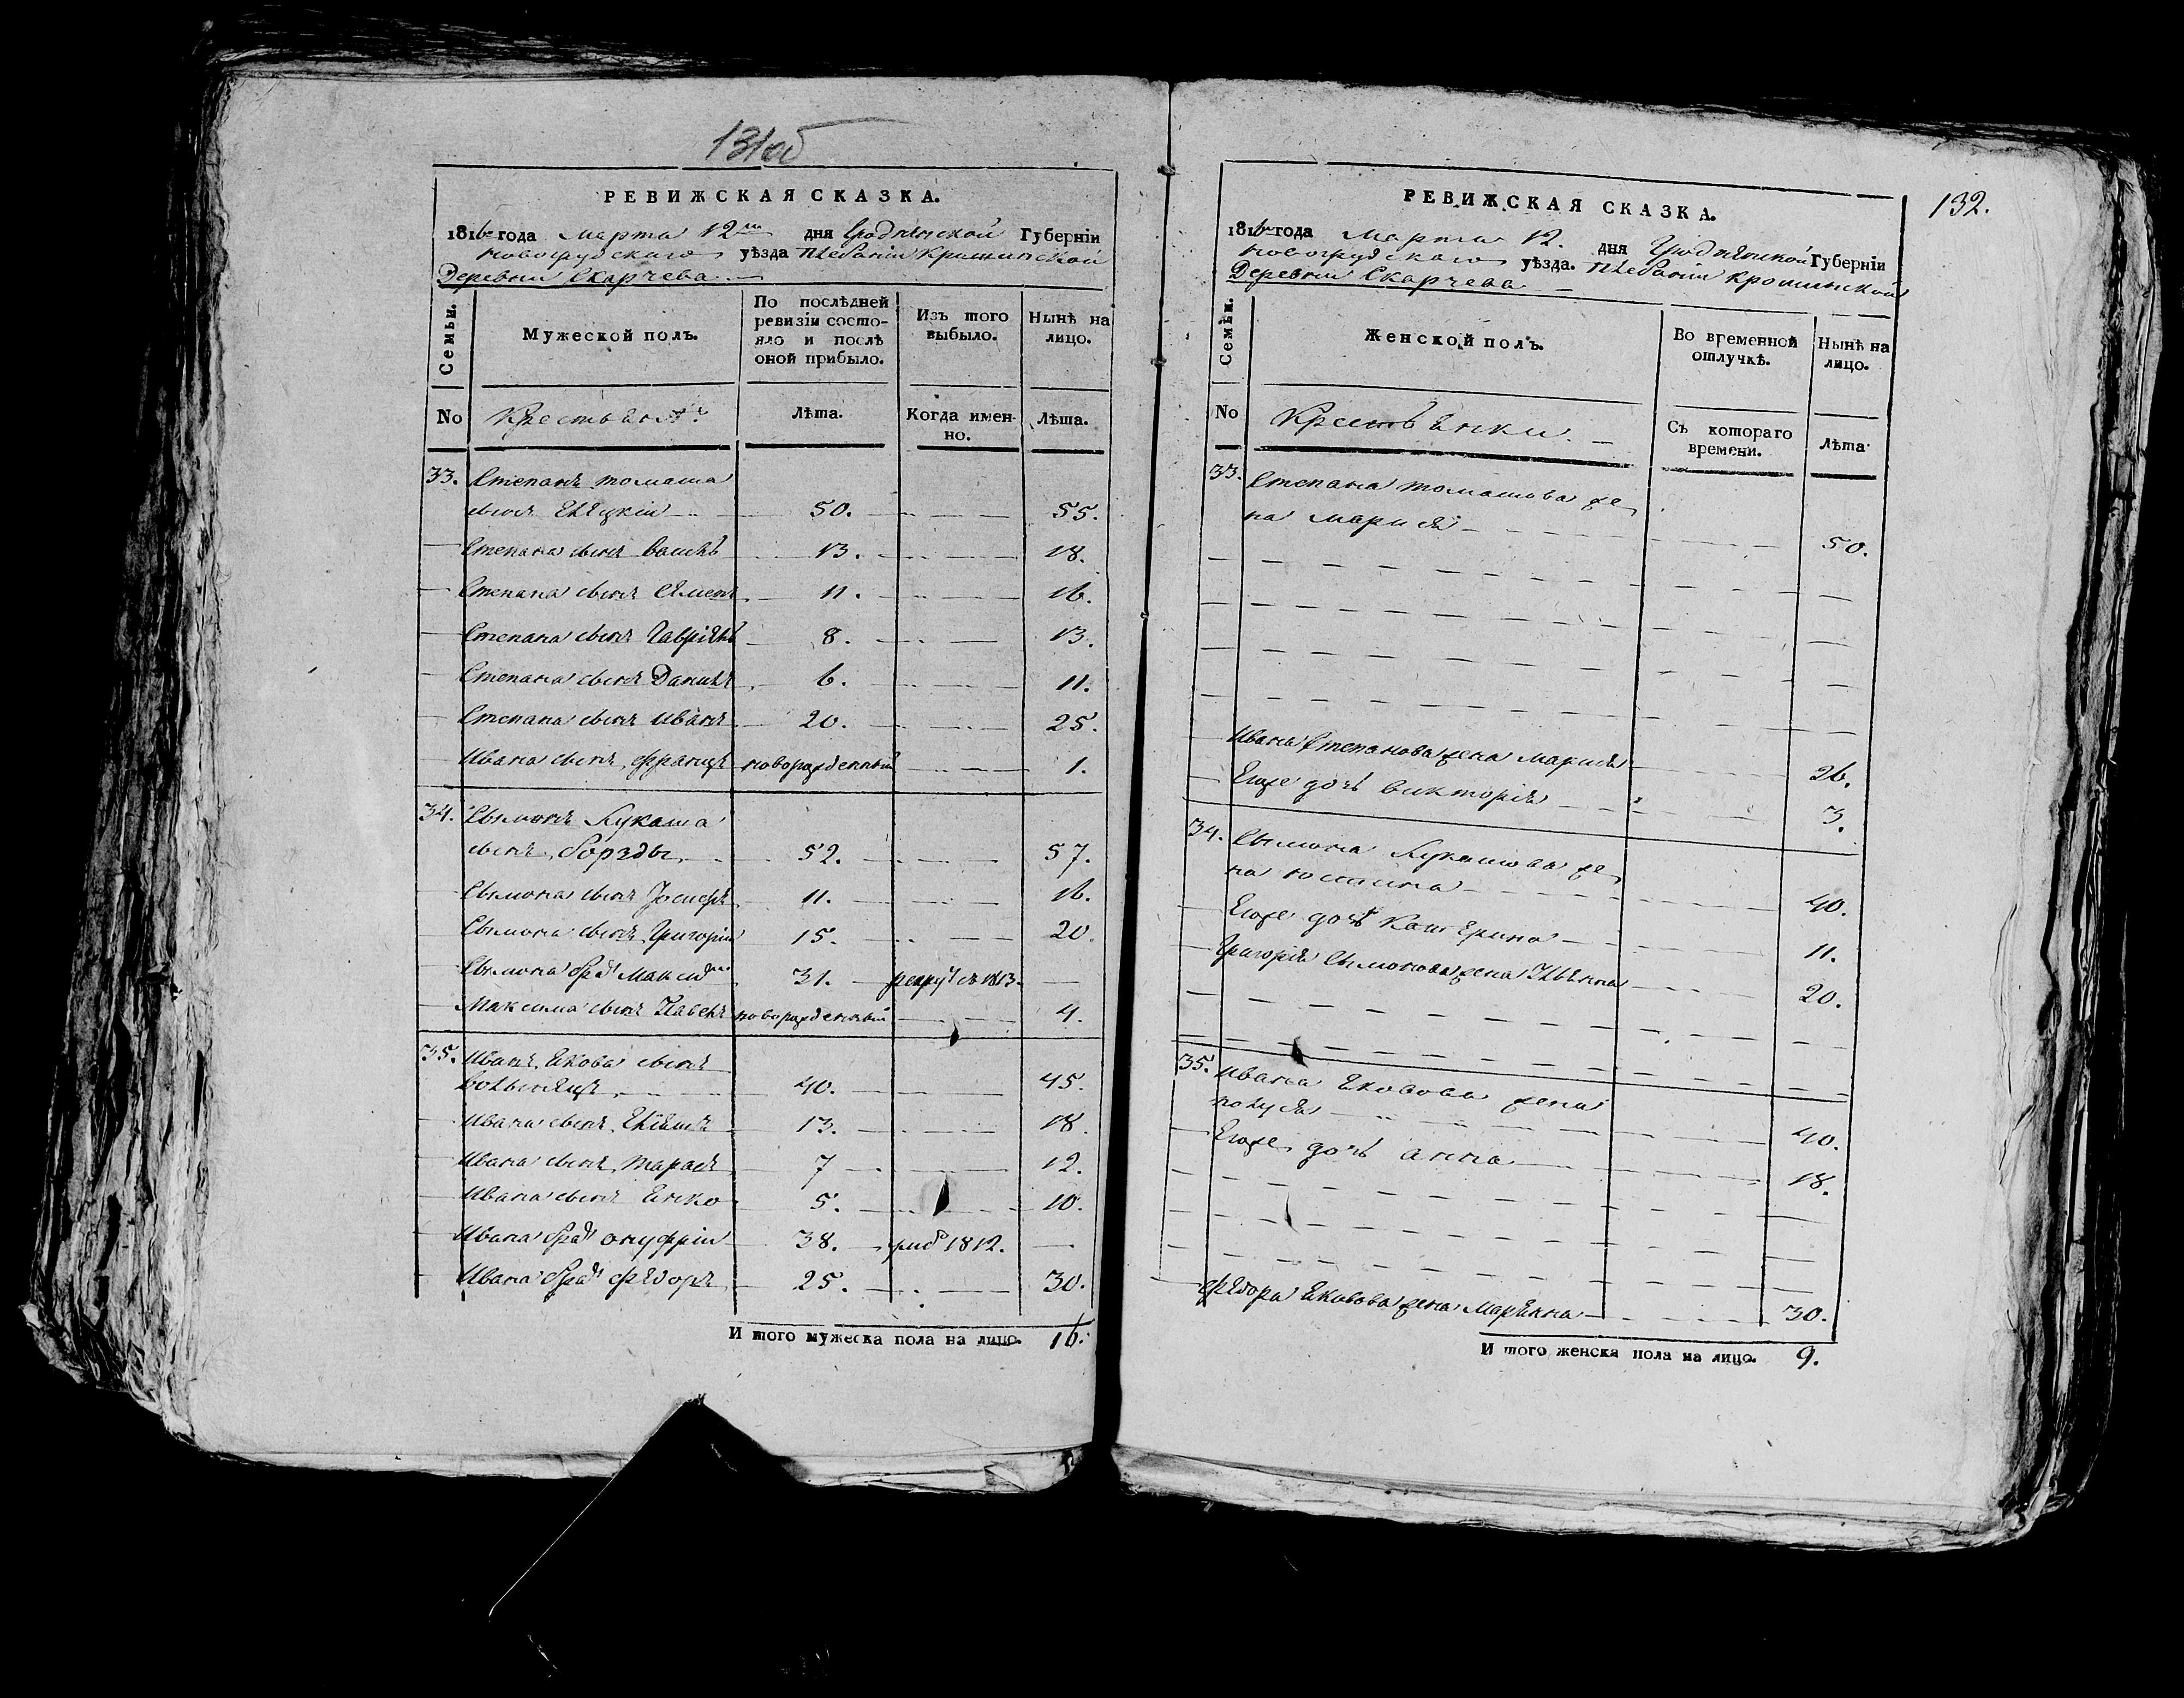 131об
РЕВИЖСКАЯ СКАЗКА.
1816 года марта 12 дня Гродненской Губерніи
новогрудскаго уѣзда плебаніи Крошинской
Деревни Скарчева
Семьи.
Мужеской полъ.
По послѣдней ревизіи состояло и послѣ оной прибыло.
Изъ того выбыло.
Нынѣ на лицо.
No
Лѣта.
Когда именно.
Лѣта.
33. Степанъ томаша
сынъ 50. 55.
Степана сынъ 13. 18.
Степана сынъ 11. 16.
Степана сынъ Гавріель 8. 13.
Степана сынъ Данилъ 6. 11.
Степана сынъ иванъ 20. 25.
Ивана сынъ францъ новорожденный 1.
34. Сымонъ Лукаша
сынъ Борзды 52. 57.
Сымона сынъ Јосифъ 11. 16.
Сымона сынъ Григорій 15. 20.
Сымона братъ Максимъ 31. 1813
Максима сынъ Павелъ новорожденный 4.
35. Иванъ Якова сынъ
40. 45.
Ивана сынъ 13. 18.
Ивана сынъ тарасъ 7 12.
Ивана сынъ Янко 5. 10.
Ивана братъ онуфрій 38. 1812.
Ивана братъ Фядоръ 25. 30.
И того мужеска пола на лицо. 16.
132.
РЕВИЖСКАЯ СКАЗКА.
1816 года Марта 12. дня Гродненской Губерніи
новогрудскаго уѣзда. плебаніи крошинской
Деревни Скарчева
Семьи.
Женской полъ.
Во временной отлучкѣ.
Нынѣ на лицо.
No
Крестьянки.
Съ котораго времени.
Лѣта
33. Степана томашова же
на марися 50.
Ивана Степанова жена марися 26.
Егоже дочь викторія 3.
34. Сымона Лукашова же
на юстина 40.
Егоже дочь Катерина 11.
Григорія Сымонова жена Ульяна 20.
35. ивана Яковова жена
40.
Егоже дочь анна 18.
Фядора Яковова жена Марьяна 30.
И того женска пола на лицо. 9.